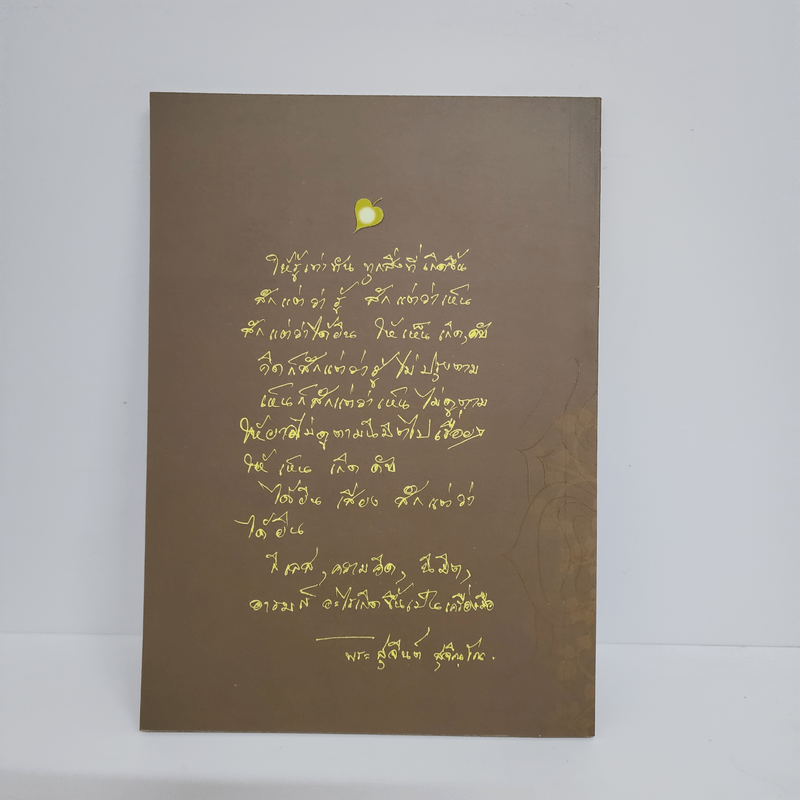 ให้รู้เท่าทัน ทุกสิ่งที่เกิดขึ้น
สักแต่ว่ารู้ สักแต่ว่าเห็น
สักแต่ว่าได้ยิน ให้เห็น เกิด,ดับ
คิดก็สักแต่ว่ารู้ ไม่ปรุงตาม
เห็นก็สักแต่ว่าเห็น ไม่ดูตาม
ไม่ดูตามนิมิตไป
ให้ เห็น เกิด ดับ
ได้ยิน เสียง สักแต่ว่า
ได้ยิน
กิเลส, ความคิด, นิมิต,
อารมณ์ อะไรเกิดขึ้นเป็นเครื่องมือ
พระ สุจินต์ สุจิณโณ.